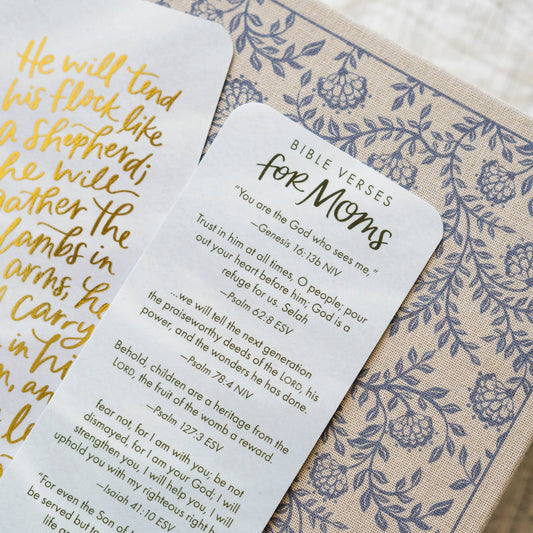 He will tend
his flock like
a shepherd;
he will
gather the
lambs in
arms, he
carry
in his
and
BIBLE VERSES
for Moms
"You are the God who sees me,"
—Genesis 16:13b NIV
Trust in him at all times, O people; pour
out your heart before him; God is a
refuge for us. Selah
—Psalm 62:8 ESV
...we will tell the next generation
the praiseworthy deeds of the LORD, his
power, and the wonders he has done.
—Psalm 78:4 NIV
Behold, children are a heritage from the
LORD, the fruit of the womb a reward.
—Psalm 127:3 ESV
fear not, for I am with you; be not
dismayed, for I am your God; I will
strengthen you, I will help you, I will
uphold you with my righteous right
—Isaiah 41:10 ESV
"For even the Son of
be served but to
life a